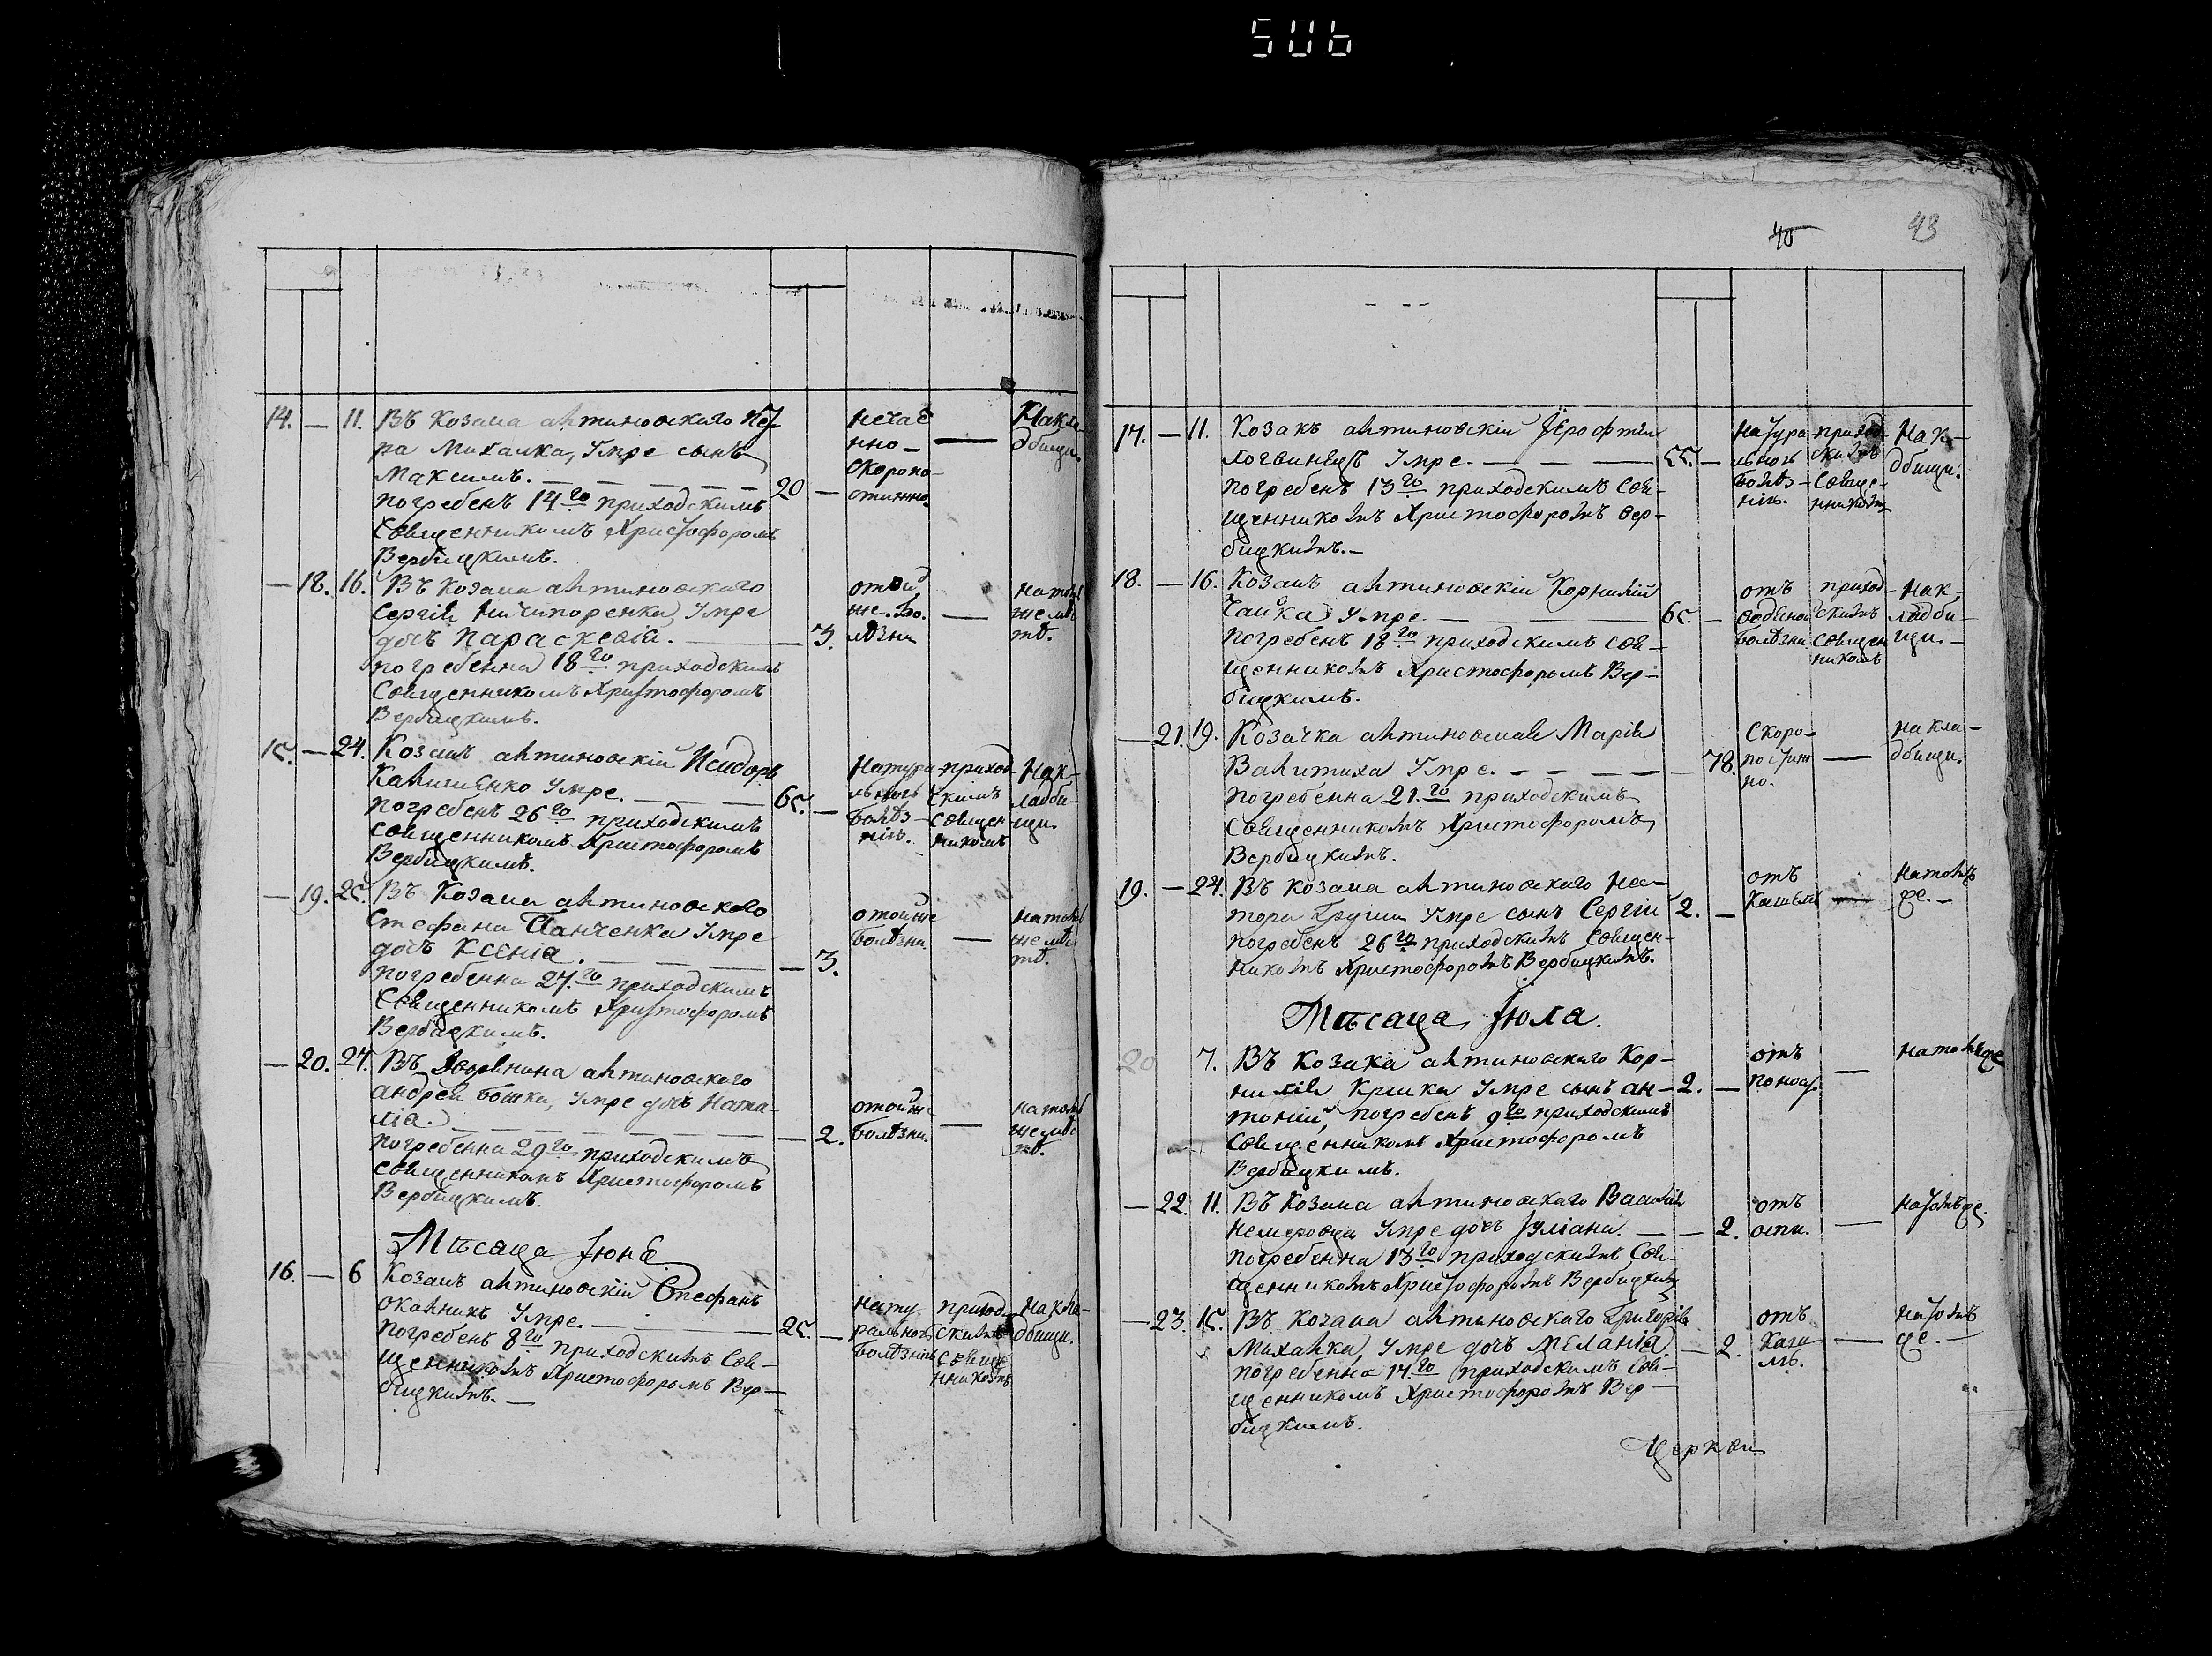 SUB
40
43
14. — 11. Въ Козака актиновского Пет-
ра Михалка, Умре сынъ
Максимъ. — — — — — 20 —
погребенъ 14го приходскимъ
Священникомъ Христофоромъ
Вербицкимъ.
нечае
нно —
скоропо
стижно.
—
Накла
дбищи.
— 18. 16. Въ Козака актиновского
Сергія Ничипоренка, Умре
дочь Параскевія. — 3.
погребенна 18го приходскимъ
Священникомъ Христофоромъ
Вербицкимъ.
отой
же. Бо.
лѣзни
—
натомъ
же мѣс
тѣ.
15. — 24. Козакъ актиновскій Исидоръ
Умре. — — — 65. —
погребенъ 26го приходскимъ
священникомъ Христофоромъ
Вербицкимъ.
Натура-
льною
Болѣз-
нію.
приход-
скимъ
Священ-
никомъ
Нак-
ладби-
щи.
— 19. 25. Въ Козака актиновского
Стефана Панченка Умре
дочь Ксенія. — — — — 3.
погребенна 27го приходскимъ
Священникомъ Христофоромъ
Вербицкимъ.
отойже
Болѣзни.
—
натомъ
же мѣс
тѣ.
— 20. 27. Въ Дворянина актиновского
андрея Бошка, Умре дочь Ната-
лія. — — — — — — 2.
погребенна 29го приходскимъ
священникомъ Христофоромъ
Вербицкимъ.
отойже
Болѣзни.
—
натомъ
же мѣс
тѣ.
Мѣсяца Іюня
16. — 6 Козакъ актиновскій Стефанъ
Умре. — — — 25. —
погребенъ 8го приходскимъ Свя-
щенникомъ Христофоромъ Вер-
бицкимъ. —
нату
ральною
Болѣзнію
приход
скимъ
священ
никомъ
Накла-
дбищи.
17. — 11. Козакъ актиновскій Іерофтей
Логвинецъ Умре. — — — 55. —
погребенъ 13го приходскимъ Свя-
щенникомъ Христофоромъ Вер-
бицкимъ. —
Натура
льною
Болѣз-
нію.
приход
скимъ
Свяще-
нникомъ
Нак-
дбищи.
18. — 16. Козакъ актиновскій Корнилій
Чайка Умре. — — 65. —
погребенъ 18го приходскимъ Свя-
щенникомъ Христофоромъ Вер-
бицкимъ.
отъ
водяной
Болѣзни
приход
скимъ
Священ
никомъ
Нак-
ладби-
щи. —
— 21. 19. Козачка актиновская Марія
Умре. — — — — 78.
погребенна 21го приходскимъ
Священникомъ Христофоромъ
Вербицкимъ.
Скоро-
постиж
но.
—
Накла-
дбищи.
19. — 24. Въ Козака актиновского Нес-
тора Груши Умре сынъ Сергій 2. —
погребенъ 26го приходскимъ Священ-
никомъ Христофоромъ Вербицкимъ.
отъ
Кашеля
натомъ
же. —
Мѣсяца Іюля.
20 7. Въ Козака актиновского Кор-
нилія Крика Умре сынъ ан- 2. —
тоній, погребенъ 9го приходскимъ
Священникомъ Христофоромъ
Вербицкимъ.
отъ
поноса.
—
натомъже
— 22. 11. Въ Козака актиновского Василія
Немеровци Умре дочь Іуліана. — — 2.
погребенна 13го приходскимъ Свя-
щенникомъ Христофоромъ Вербицкимъ
отъ
оспи.
—
Натомъже.
— 23. 15. Въ Козака актиновского Григорія
Михалка, Умре дочь Меланія. — 2.
погребенна 17го приходскимъ Свя-
щенникомъ Христофоромъ Вер-
бицкимъ.
отъ
Каш
ля.
—
Натомъ
же. —
Церкви